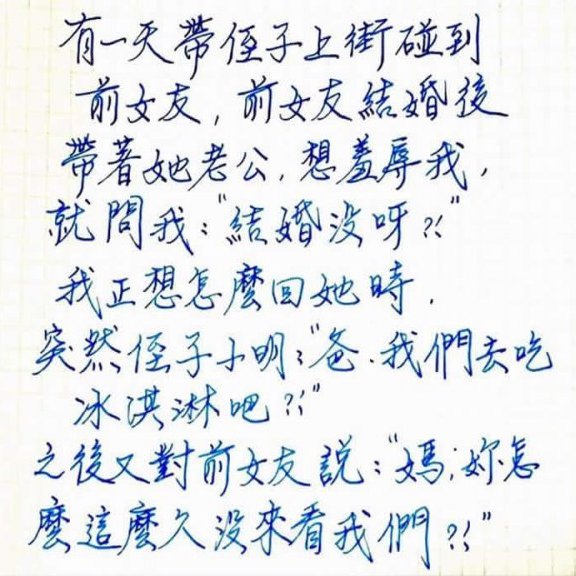 有一天帶侄子上街碰到
前女友，前女友結婚後
帶著她老公，想羞辱我，
就問我：“結婚没呀？！”
我正想怎麼回她時．
突然侄子小明：“爸．我們去吃
冰淇淋吧？！”
之後又對前女友説：“媽；妳怎
麼這麼久没來看我們？！”